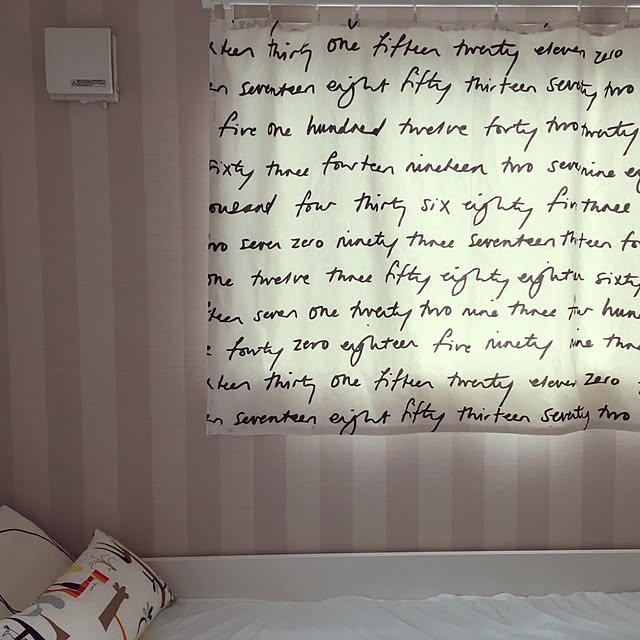 teen thirty one fifteen twenty eleven zero
en seventeen eight fifty thirteen seventy two
five one hundred twelve forty two twenty
sixty three fourteen nineteen two seven nine
ousand four thirty six eighty fin three
two seven zero ninety three seventeen thirteen fo
one twelve three fifty eighty eight sixty
teen seven one twenty two nine three four hun
e fourty zero eighteen five ninety ine three
teen thirty one fifteen twenty eleven zero
en seventeen eight fifty thirteen seventy two